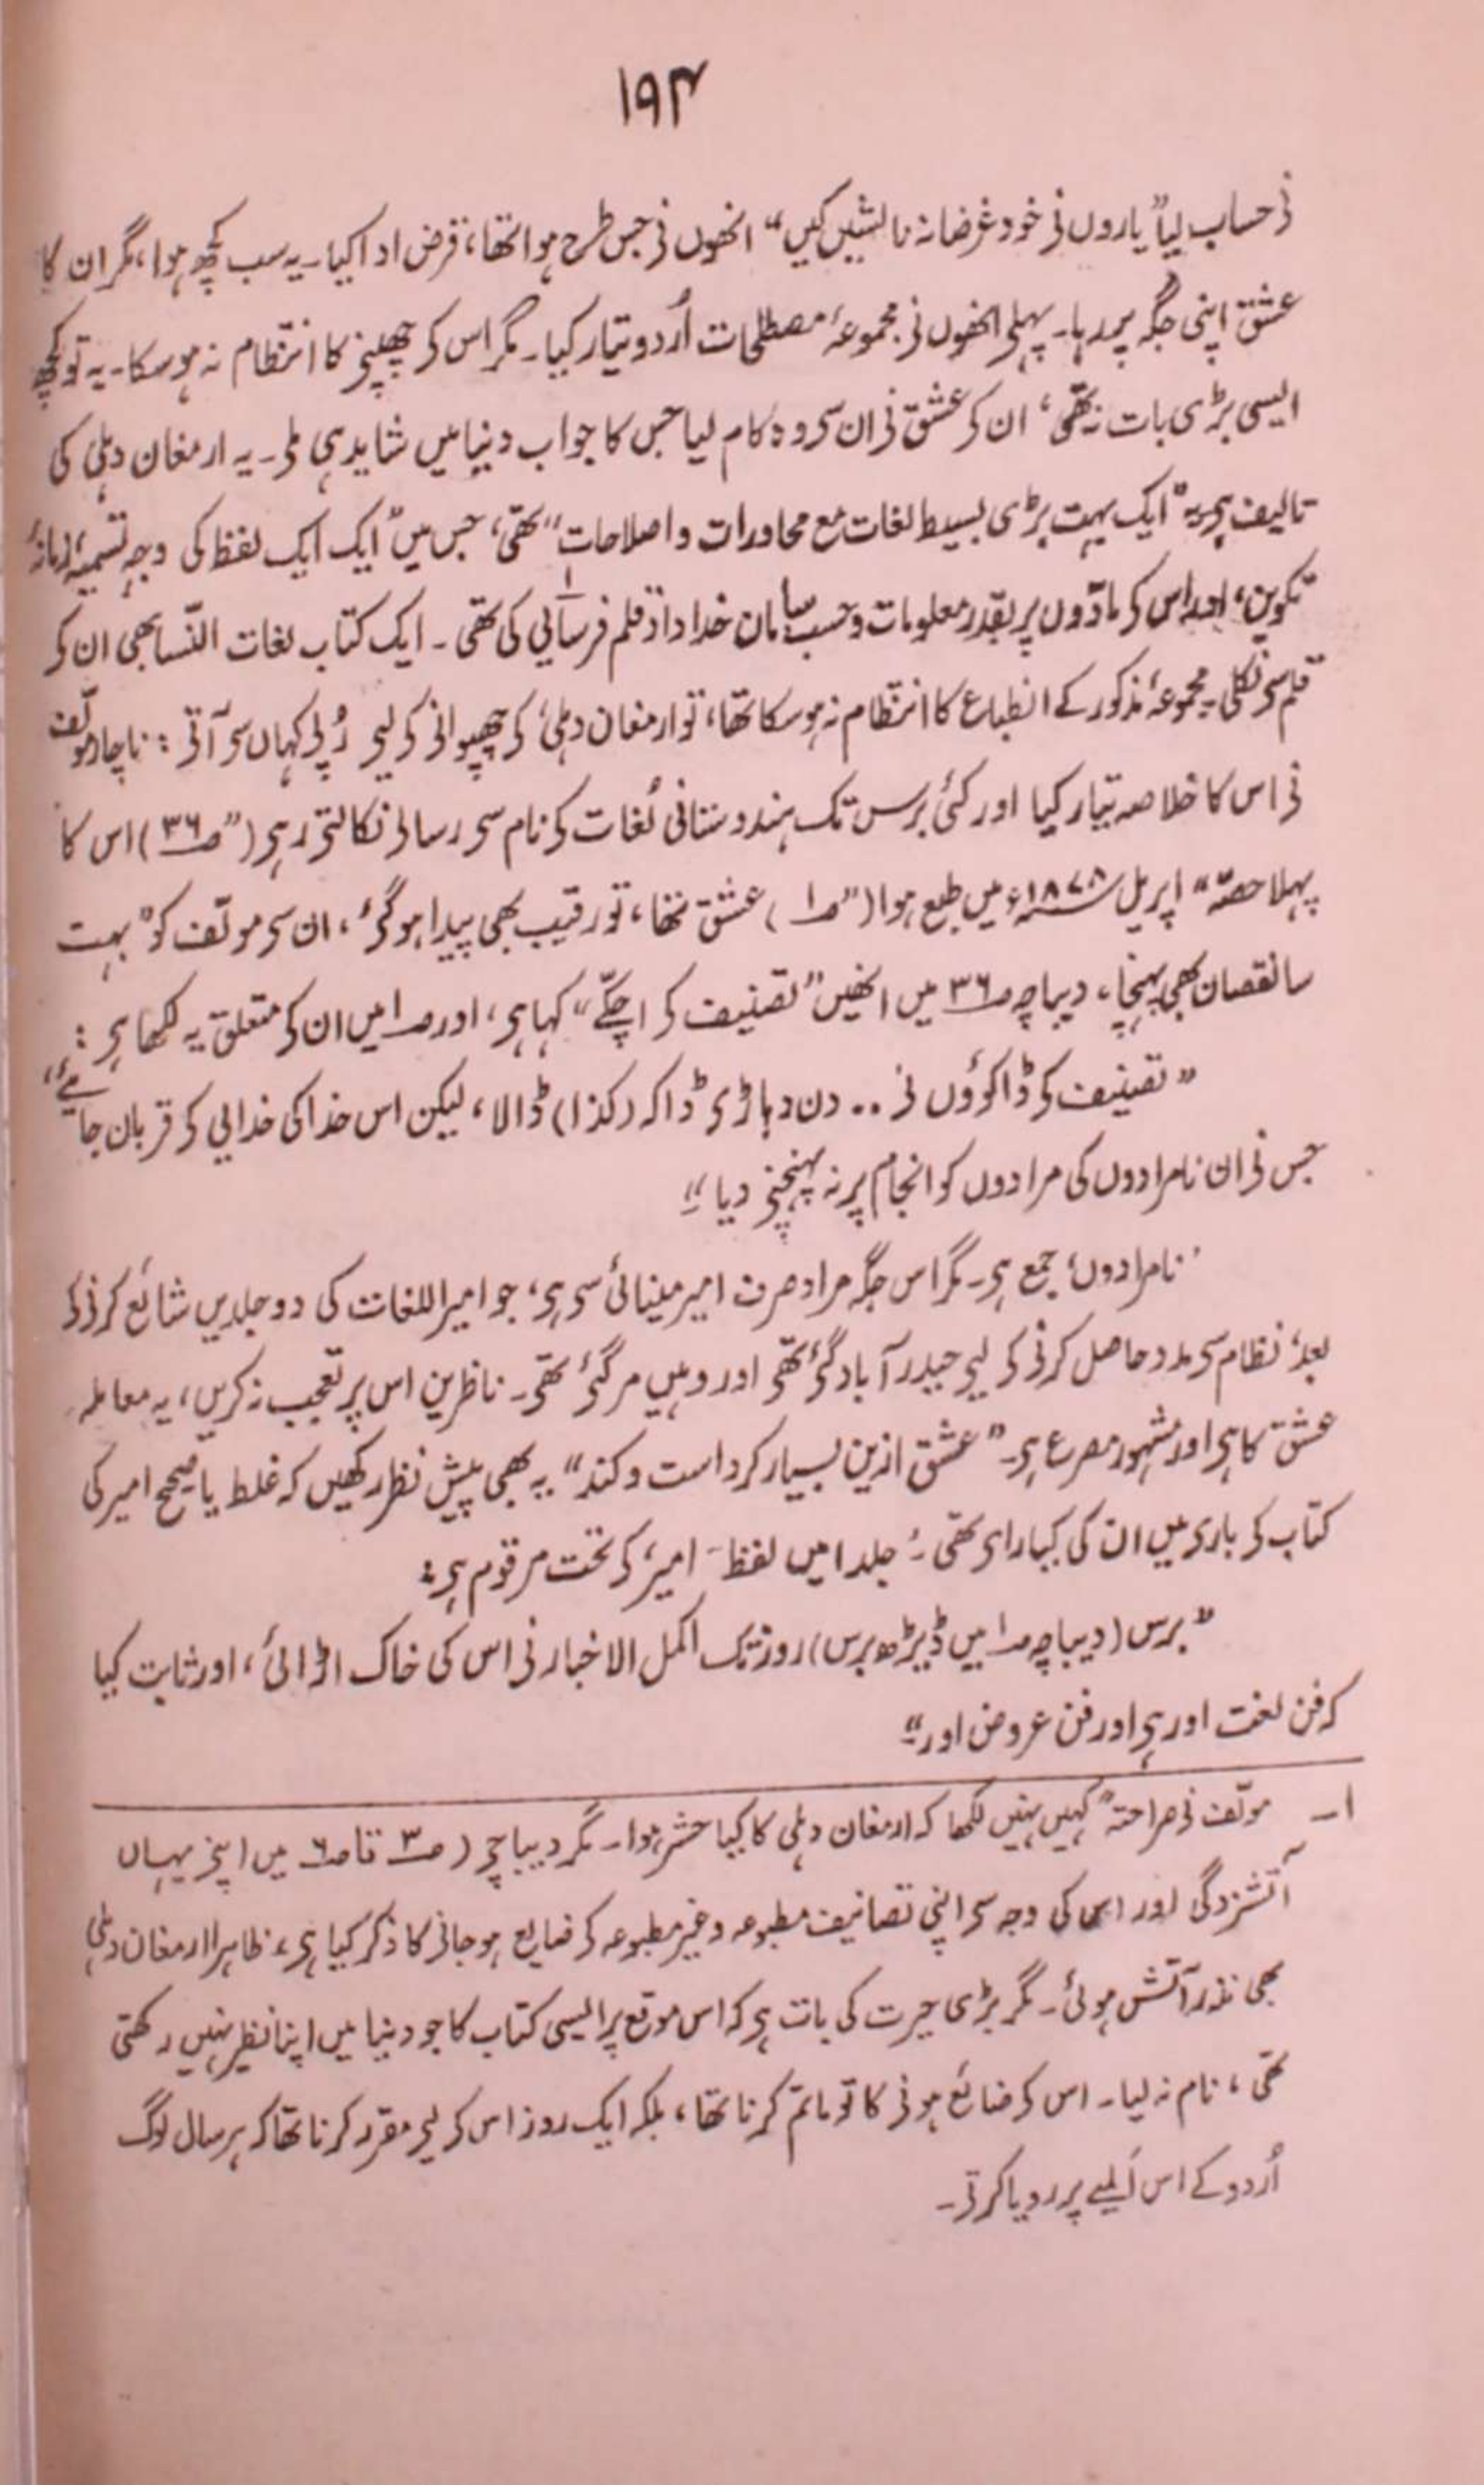 ۱۹۴
نے حساب لیا” یاروں نے خود غرضانہ نالشیں کیں“ انھوں نے جس طرح ہوا تھا، قرض ادا کیا۔ یہ سب کچھ ہوا، مگر ان کا
عشق اپنی جگہ پر رہا۔ پہلے انھوں نے مجموعۂ مصطلحات اُردو تیار کیا۔ مگر اس کے چھپنے کا انتظام نہ ہو سکا۔ یہ تو کچھ
ایسی بڑی بات نہ تھی، ان کے عشق نے ان سے وہ کام لیا جس کا جواب دنیا میں شاید ہی ملے۔ یہ ارمغان دہلی کی
تالیف ہے۔ یہ” ایک بہت بڑی بسیط لغات مع محاورات و اصلاحات“ تھی، جس میں” ایک ایک لفظ کی وجہ تسمیہ، زمانۂ
تکوین، اور اس کے مادّوں پر بقدر معلومات و حسب سامان خداداد قلم فرسائی کی تھی۔ ۱ ایک کتاب لغات النّسا بھی ان کے
قلم سے نکلی۔ مجموعۂ مذکور کے انطباع کا انتظام نہ ہو سکا تھا، تو ارمغان دہلی کے چھپوانے کے لیے رُپے کہاں سے آتے: ناچار مولّف
نے اس کا خلاصہ تیار کیا اور کئی برس تک ہندوستانی لُغات کے نام سے رسالے نکالتے رہے (” ص۳۶) اس کا
پہلا حصّہ“ اپریل ۱۸۷۸ء میں طبع ہوا (” ص۱) عشق تھا، تو رقیب بھی پیدا ہو گئے، ان سے مولّف کو” بہت
سا نقصان بھی پہنچا، دیباچہ ص۳۶ میں انھیں” تصنیف کے اچکّے“ کہا ہے، اور ص۱ میں ان کے متعلق یہ لکھا ہے:
” تصنیف کے ڈاکوؤں نے .. دن دہاڑے ڈاکہ (کذا) ڈالا، لیکن اس خدا کی خدائی کے قربان جائیے،
جس نے ان نامرادوں کی مرادوں کو انجام پر نہ پہنچنے دیا“۔
’نامرادوں‘ جمع ہے۔ مگر اس جگہ مراد صرف امیر مینائی سے ہے، جو امیر اللغات کی دو جلدیں شائع کرنے کے
بعد، نظام سے مدد حاصل کرنے کے لیے حیدر آباد گئے تھے اور وہیں مر گئے تھے۔ ناظرین اس پر تعجب نہ کریں، یہ معاملہ
عشق کا ہے اور مشہور مصرع ہے۔ ” عشق ازین بسیار کرد است و کند“ یہ بھی پیش نظر رکھیں کہ غلط یا صحیح امیر کی
کتاب کے بارے میں ان کی کیا رائے تھی۔ جلد ۱ میں لفظ ’امیر‘ کے تحت مرقوم ہے:
” برس (دیباچہ ص۱ میں ڈیڑھ برس) روز تک اکمل الاخبار نے اس کی خاک اڑائی، اور ثابت کیا
کہ فن لغت اور ہے اور فن عروض اور“۔
۱۔ مولّف نے صراحتہً کہیں نہیں لکھا کہ ارمغان دہلی کا کیا حشر ہوا۔ مگر دیباچے (ص۳ تا ص۶ میں اپنے یہاں
آتشزدگی اور اس کی وجہ سے اپنی تصانیف مطبوعہ و غیر مطبوعہ کے ضایع ہو جانے کا ذکر کیا ہے، ظاہرا ارمغان دہلی
بھی نذر آتش ہوئی۔ مگر بڑی حیرت کی بات ہے کہ اس موقع پر ایسی کتاب کا جو دنیا میں اپنا نظیر نہیں رکھتی
تھی، نام نہ لیا۔ اس کے ضائع ہونے کا تو ماتم کرنا تھا، بلکہ ایک روز اس کے لیے مقرر کرنا تھا کہ ہر سال لوگ
اُردو کے اس اَلمیے پر رویا کرتے۔